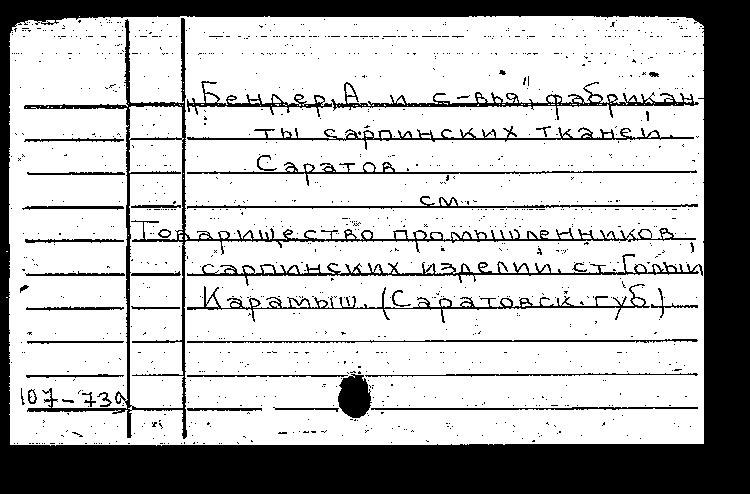 „Бендер, А. и с-вья", фабрикан-
ты сарпинских тканей.
Саратов.
см.
Товарищество промышленников
сарпинских изделий. ст. Голый
Карамыш. (Саратовск. губ.)
107-739